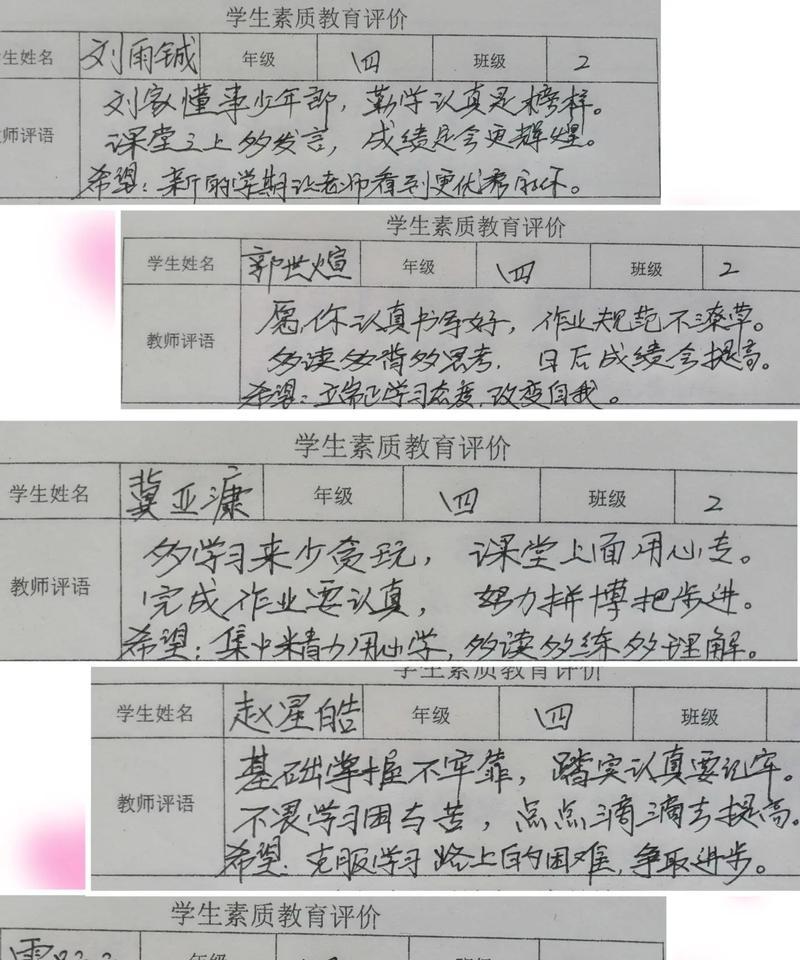 学生素质教育评价
生姓名 刘雨铖 年级 四 班级 2
师评语
刘家懂事少年郎，勤学认真是榜样。
课堂之上多发言，成绩定会更辉煌。
希望：新的学期让老师看到更优秀的你。
学生素质教育评价
学生姓名 郭世煊 年级 四 班级 2
教师评语
愿你认真书写好，作业规范不潦草。
多读多背多思考，日后成绩会提高。
希望：正学习态度，改变自我。
学生素质教育评价
学生姓名 冀亚漮 年级 四 班级 2
教师评语
多学习来少贪玩，课堂上面用心专。
完成作业要认真，努力拼博把步进。
希望：集中精力用心学，多读多练多理解。
学生素质教育评价
学生姓名 赵星皓 年级 四 班级
教师评语
基础掌握不牢靠，踏实认真要记牢。
不畏学习困与苦，点点滴滴去提高。
希望：克服学习路上的困难，争取进步。
学生素质教育评价
年级 班级